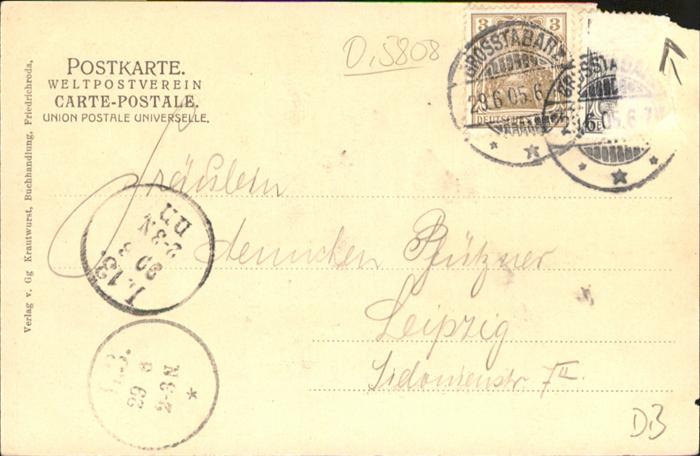 D.5808
POSTKARTE.
WELTPOSTVEREIN
CARTE-POSTALE.
UNION POSTALE UNIVERSELLE.
Verlag v. Gg Krautwurst, Buchhandlung, Friedrichroda,
3 3
DEUTSCHES
GROSSTABARZ
29.6.05.6-
GROSSTABARZ
29.6.05.6-7N
Fräulein
Pfützner
Leipzig
Sidonienstr. 7 II
L.13.
2-3N
D.B